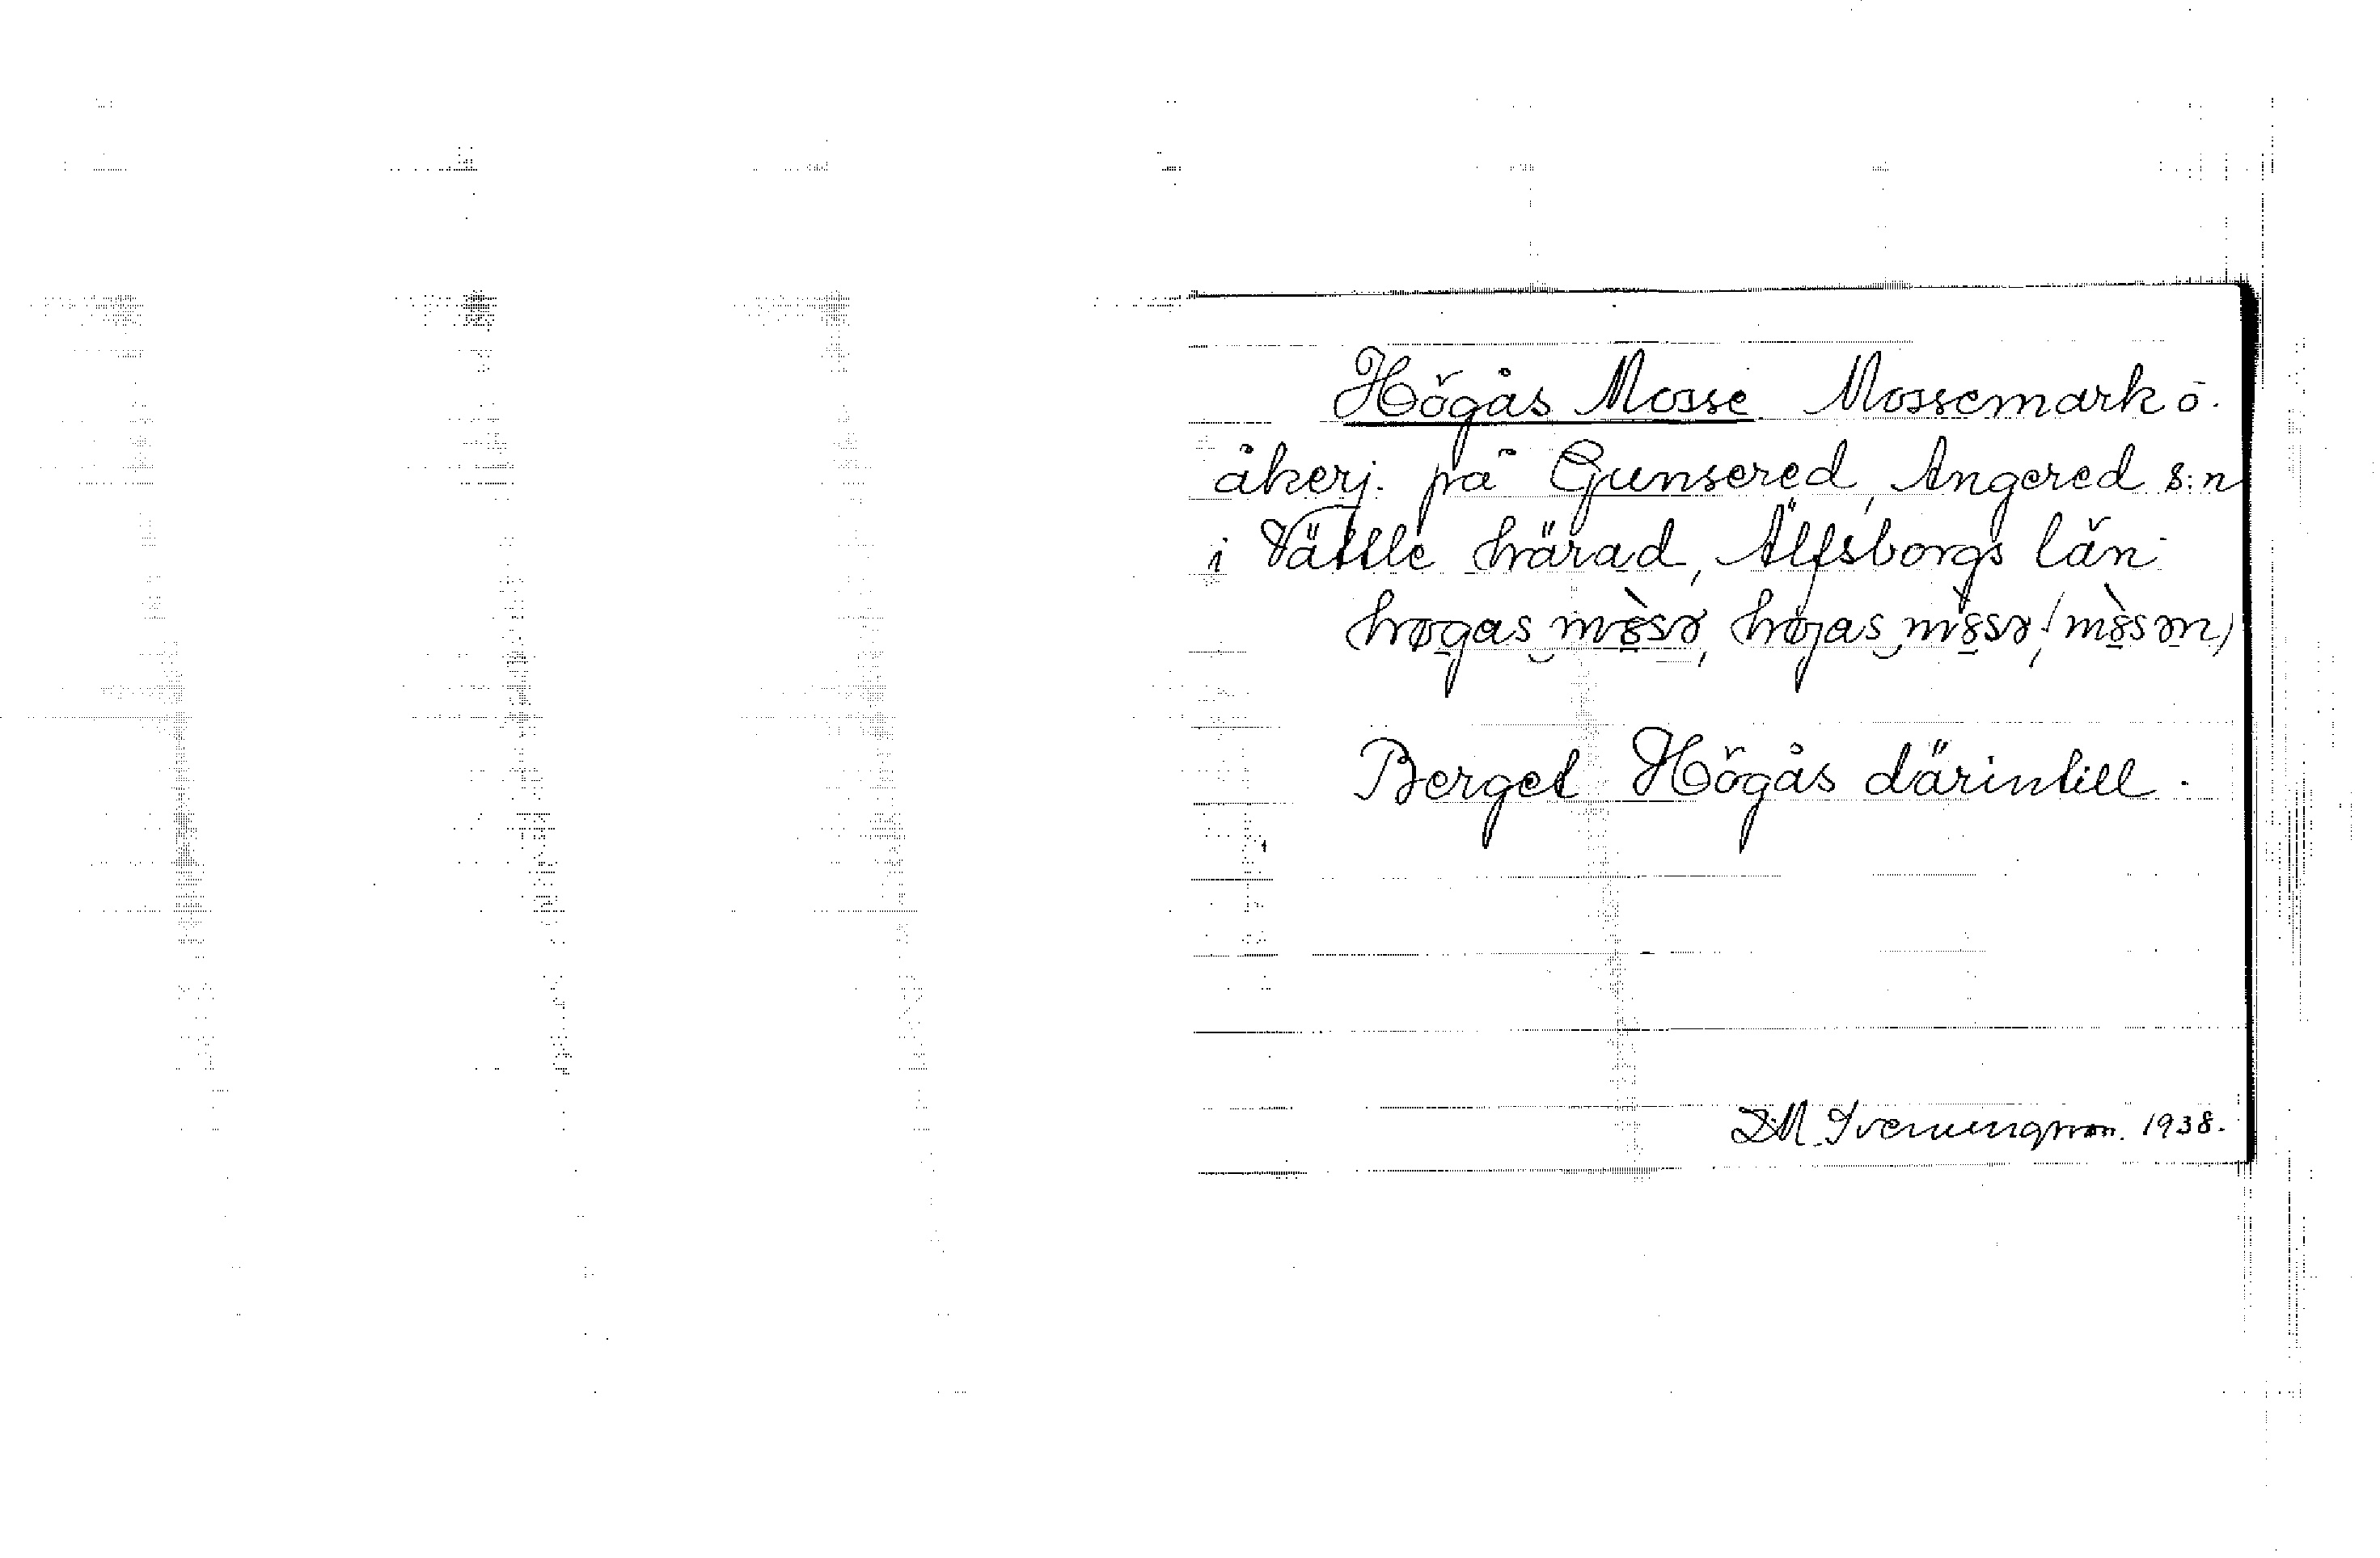 Högås Mosse Mossemark o.
åkerj. på Gunsered, Angered s:n
i Vättle härad, Älfsborgs län
Berget Högås därintill.
D.M. Svenningsson. 1938.